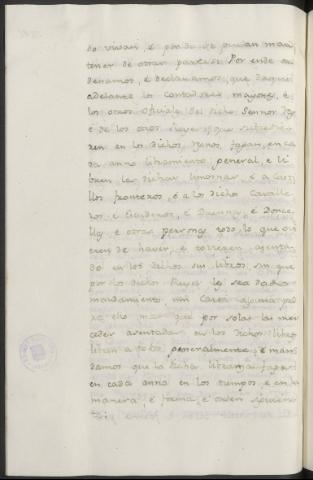 do vivan, é pondo se puedan man
tener de otras partes: Por ende or
denamos, é declaramos, que daqui
adelante los contadores mayores, é
los otros Oficiales del dicho Sennor Rey
é de los otros Reyes que subcedie
ren en los dichos Regnos, fagan, en ca
da anno libramiento general, é li
bren las dichas limosnas, é á Casti
llos fronteros, é á los dichos Cavalle
ros é Escuderos, é Duennas, é Donce
llas é otras personas todo lo que ovi
eren de haver, é tovieren asenta
do en los dichos sus libros sin que
por los dichos Reyes les sea dado
mandamiento, nin Carta alguna pa
ra ello mas que por solas las mer
cedes asentadas en los dichos libros
libren á todos generalmente, é man
damos que la dicha libranza fagan
en cada anno en los tiempos, é en la
manera é forma, é orden siguiente